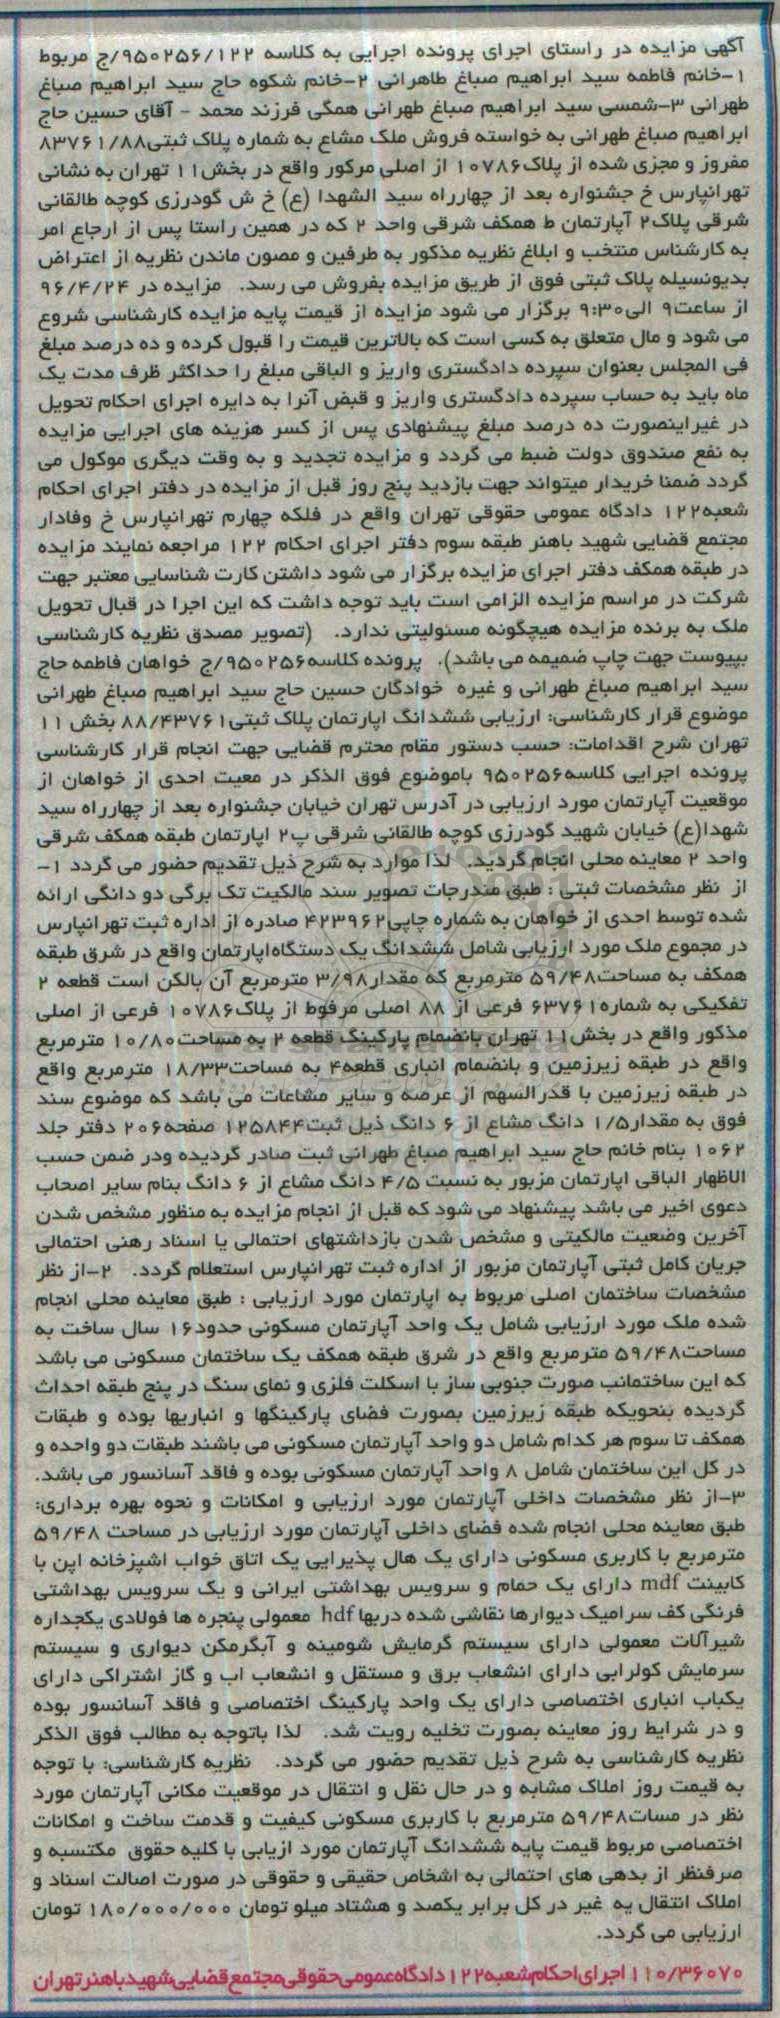 آگهی مزایده در راستای اجرای پرونده اجرایی به کلاسه ۹۵۰۲۵۶/۱۲۲/ج مربوط
۱-خانم فاطمه سید ابراهیم صباغ طاهرانی ۲-خانم شکوه حاج سید ابراهیم صباغ
طهرانی ۳-شمسی سید ابراهیم صباغ طهرانی همگی فرزند محمد - آقای حسین حاج
ابراهیم صباغ طهرانی به خواسته فروش ملک مشاع به شماره پلاک ثبتی۸۳۷۶۱/۸۸
مفروز و مجزی شده از پلاک۱۰۷۸۶ از اصلی مرکور واقع در بخش۱۱ تهران به نشانی
تهرانپارس خ جشنواره بعد از چهارراه سید الشهدا (ع) خ ش گودرزی کوچه طالقانی
شرقی پلاک۲ آپارتمان ط همکف شرقی واحد ۲ که در همین راستا پس از ارجاع امر
به کارشناس منتخب و ابلاغ نظریه مذکور به طرفین و مصون ماندن نظریه از اعتراض
بدیونسیله پلاک ثبتی فوق از طریق مزایده بفروش می رسد. مزایده در ۹۶/۴/۲۴
از ساعت۹ الی۹:۳۰ برگزار می شود مزایده از قیمت پایه مزایده کارشناسی شروع
می شود و مال متعلق به کسی است که بالاترین قیمت را قبول کرده و ده درصد مبلغ
فی المجلس بعنوان سپرده دادگستری واریز و الباقی مبلغ را حداکثر ظرف مدت یک
ماه باید به حساب سپرده دادگستری واریز و قبض آنرا به دایره اجرای احکام تحویل
در غیراینصورت ده درصد مبلغ پیشنهادی پس از کسر هزینه های اجرایی مزایده
به نفع صندوق دولت ضبط می گردد و مزایده تجدید و به وقت دیگری موکول می
گردد ضمنا خریدار میتواند جهت بازدید پنج روز قبل از مزایده در دفتر اجرای احکام
شعبه۱۲۲ دادگاه عمومی حقوقی تهران واقع در فلکه چهارم تهرانپارس خ وفادار
مجتمع قضایی شهید باهنر طبقه سوم دفتر اجرای احکام ۱۲۲ مراجعه نمایند مزایده
در طبقه همکف دفتر اجرای مزایده برگزار می شود داشتن کارت شناسایی معتبر جهت
شرکت در مراسم مزایده الزامی است باید توجه داشت که این اجرا در قبال تحویل
ملک به برنده مزایده هیچگونه مسئولیتی ندارد. (تصویر مصدق نظریه کارشناسی
بپیوست جهت چاپ ضمیمه می باشد). پرونده کلاسه۹۵۰۲۵۶/ج خواهان فاطمه حاج
سید ابراهیم صباغ طهرانی و غیره خوادگان حسین حاج سید ابراهیم صباغ طهرانی
موضوع قرار کارشناسی: ارزیابی ششدانگ اپارتمان پلاک ثبتی۸۸/۴۳۷۶۱ بخش ۱۱
تهران شرح اقدامات: حسب دستور مقام محترم قضایی جهت انجام قرار کارشناسی
پرونده اجرایی کلاسه۹۵۰۲۵۶ باموضوع فوق الذکر در معیت احدی از خواهان از
موقعیت آپارتمان مورد ارزیابی در آدرس تهران خیابان جشنواره بعد از چهارراه سید
شهدا(ع) خیابان شهید گودرزی کوچه طالقانی شرقی پ۲ اپارتمان طبقه همکف شرقی
واحد ۲ معاینه محلی انجام گردید. لذا موارد به شرح ذیل تقدیم حضور می گردد ۱-
از نظر مشخصات ثبتی : طبق مندرجات تصویر سند مالکیت تک برگی دو دانگی ارائه
شده توسط احدی از خواهان به شماره چاپی۴۲۳۹۶۲ صادره از اداره ثبت تهرانپارس
در مجموع ملک مورد ارزیابی شامل ششدانگ یک دستگاه‌اپارتمان واقع در شرق طبقه
همکف به مساحت۵۹/۴۸ مترمربع که مقدار۳/۹۸ مترمربع آن بالکن است قطعه ۲
تفکیکی به شماره۶۳۷۶۱ فرعی از ۸۸ اصلی مرفوط از پلاک۱۰۷۸۶ فرعی از اصلی
مذکور واقع در بخش۱۱ تهران بانضمام پارکینگ قطعه ۲ به مساحت۱۰/۸۰ مترمربع
واقع در طبقه زیرزمین و بانضمام انباری قطعه۴ به مساحت۱۸/۳۳ مترمربع واقع
در طبقه زیرزمین با قدرالسهم از عرصه و سایر مشاعات می باشد که موضوع سند
فوق به مقدار۱/۵ دانگ مشاع از ۶ دانگ ذیل ثبت۱۲۵۸۴۴ صفحه۲۰۶ دفتر جلد
۱۰۶۲ بنام خانم حاج سید ابراهیم صباغ طهرانی ثبت صادر گردیده ودر ضمن حسب
الاظهار الباقی اپارتمان مزبور به نسبت ۴/۵ دانگ مشاع از ۶ دانگ بنام سایر اصحاب
دعوی اخیر می باشد پیشنهاد می شود که قبل از انجام مزایده به منظور مشخص شدن
آخرین وضعیت مالکیتی و مشخص شدن بازداشتهای احتمالی یا اسناد رهنی احتمالی
جریان کامل ثبتی آپارتمان مزبور از اداره ثبت تهرانپارس استعلام گردد. ۲-از نظر
مشخصات ساختمان اصلی مربوط به اپارتمان مورد ارزیابی : طبق معاینه محلی انجام
شده ملک مورد ارزیابی شامل یک واحد آپارتمان مسکونی حدود۱۶ سال ساخت به
مساحت۵۹/۴۸ مترمربع واقع در شرق طبقه همکف یک ساختمان مسکونی می باشد
که این ساختمانب صورت جنوبی ساز با اسکلت فلزی و نمای سنگ در پنج طبقه احداث
گردیده بنحویکه طبقه زیرزمین بصورت فضای پارکینگها و انباریها بوده و طبقات
همکف تا سوم هر کدام شامل دو واحد آپارتمان مسکونی می باشند طبقات دو واحده و
در کل این ساختمان شامل ۸ واحد آپارتمان مسکونی بوده و فاقد آسانسور می باشد.
۳-از نظر مشخصات داخلی آپارتمان مورد ارزیابی و امکانات و نحوه بهره برداری:
طبق معاینه محلی انجام شده فضای داخلی آپارتمان مورد ارزیابی در مساحت ۵۹/۴۸
مترمربع با کاربری مسکونی دارای یک هال پذیرایی یک اتاق خواب اشپزخانه اپن با
کابینت mdf دارای یک حمام و سرویس بهداشتی ایرانی و یک سرویس بهداشتی
فرنگی کف سرامیک دیوارها نقاشی شده دربها hdf معمولی پنجره ها فولادی یکجداره
شیرآلات معمولی دارای سیستم گرمایش شومینه و آبگرمکن دیواری و سیستم
سرمایش کولرابی دارای انشعاب برق و مستقل و انشعاب اب و گاز اشتراکی دارای
یکباب انباری اختصاصی دارای یک واحد پارکینگ اختصاصی و فاقد آسانسور بوده
و در شرایط روز معاینه بصورت تخلیه رویت شد. لذا باتوجه به مطالب فوق الذکر
نظریه کارشناسی به شرح ذیل تقدیم حضور می گردد. نظریه کارشناسی: با توجه
به قیمت روز املاک مشابه و در حال نقل و انتقال در موقعیت مکانی آپارتمان مورد
نظر در مسات۵۹/۴۸ مترمربع با کاربری مسکونی کیفیت و قدمت ساخت و امکانات
اختصاصی مربوط قیمت پایه ششدانگ آپارتمان مورد ازیابی با کلیه حقوق مکتسبه و
صرفنظر از بدهی های احتمالی به اشخاص حقیقی و حقوقی در صورت اصالت اسناد و
املاک انتقال یه غیر در کل برابر یکصد و هشتاد میلو تومان ۱۸۰/۰۰۰/۰۰۰ تومان
ارزیابی می گردد.
۱۱۰/۳۶۰۷۰ اجرای احکام شعبه۱۲۲ دادگاه عمومی حقوقی مجتمع قضایی شهید باهنر تهران